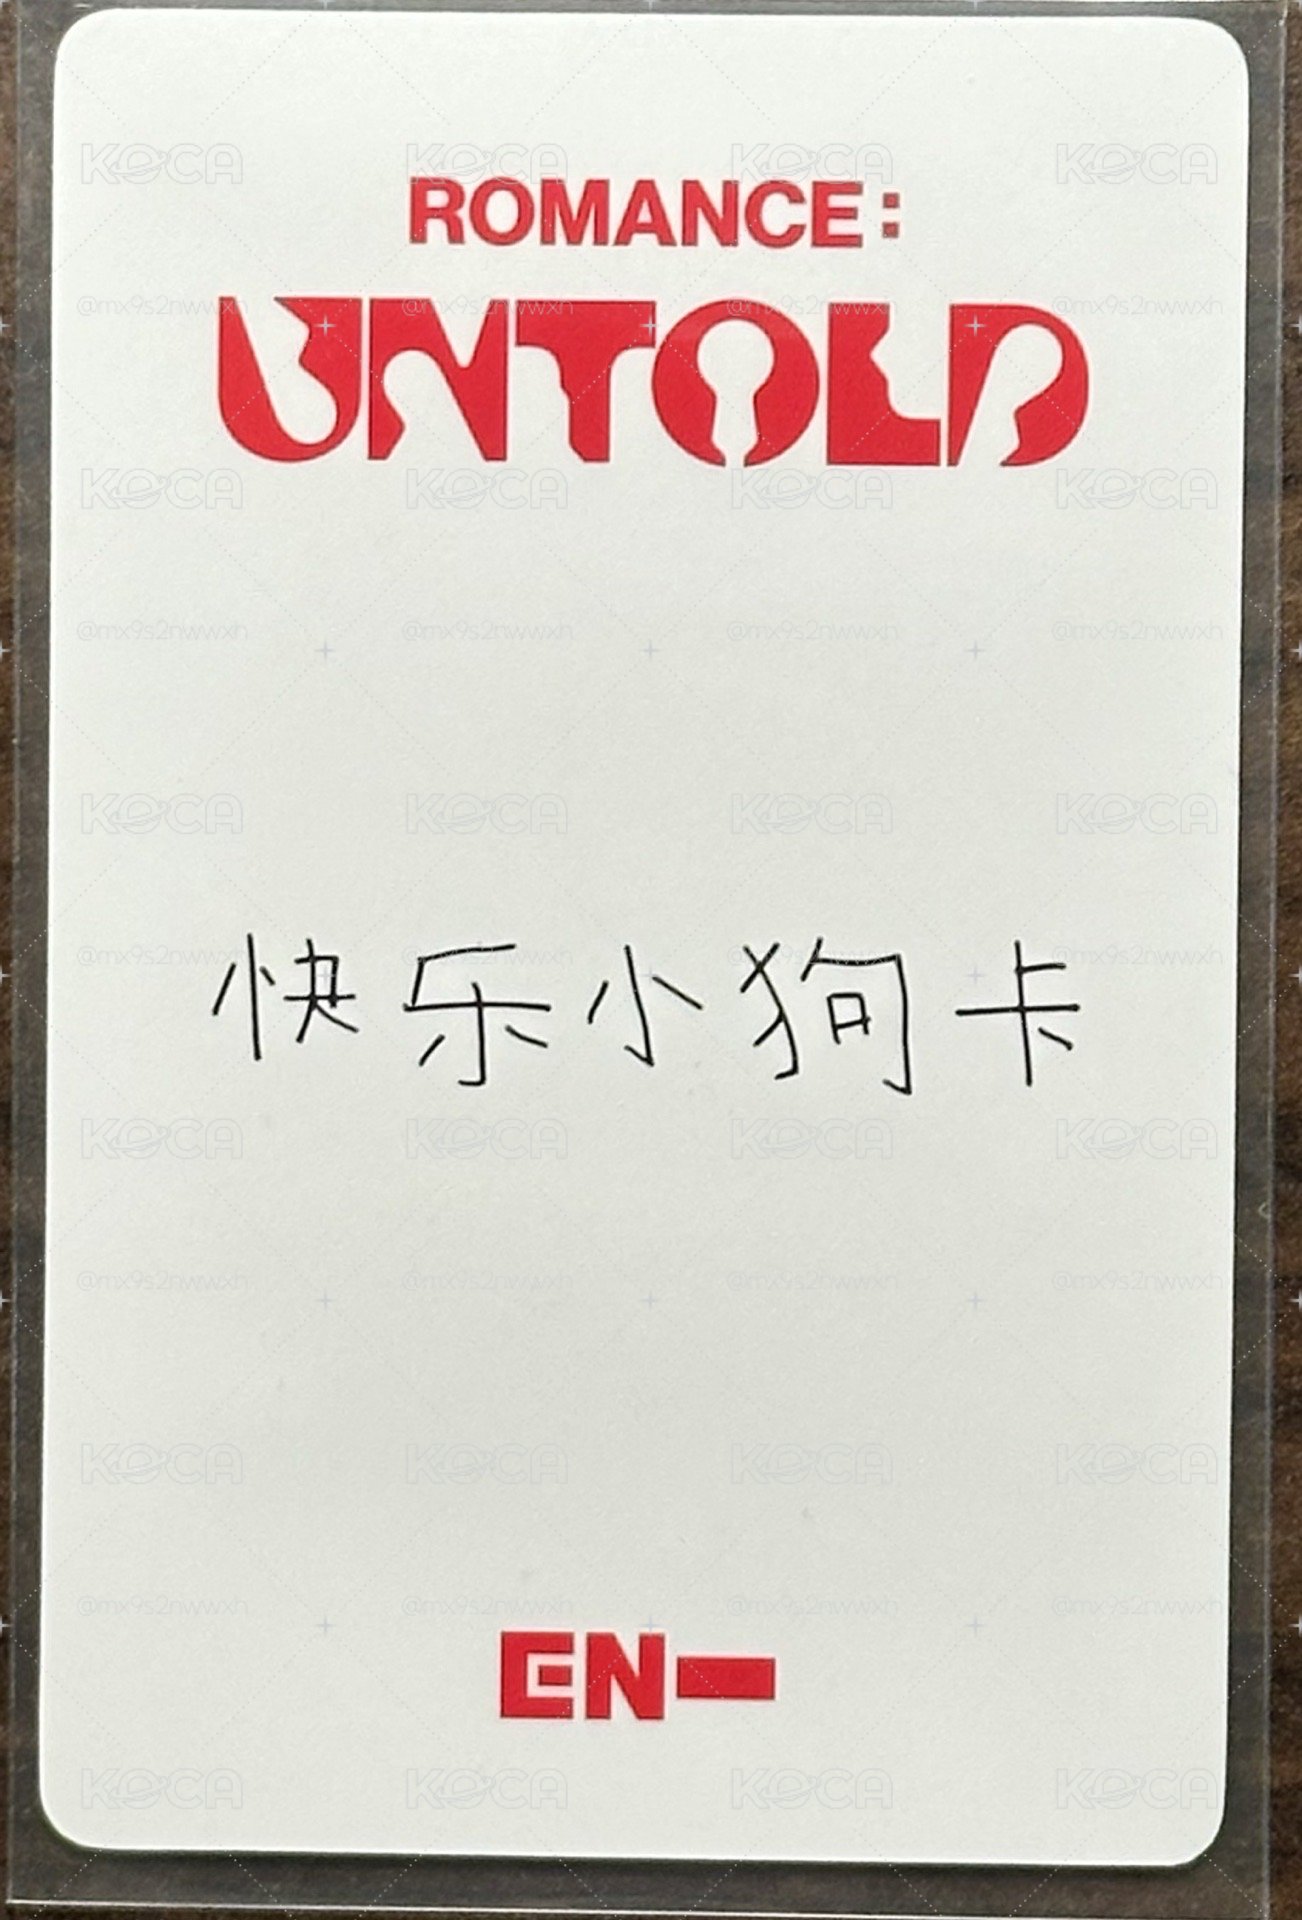 ROMANCE:
UNTOLD
快乐小狗卡
EN-
KOCA KOCA KOCA KOCA
@mx9s2nwwxh @mx9s2nwwxh @mx9s2nwwxh @mx9s2nwwxh
KOCA KOCA KOCA KOCA
@mx9s2nwwxh @mx9s2nwwxh @mx9s2nwwxh @mx9s2nwwxh
KOCA KOCA KOCA KOCA
@mx9s2nwwxh @mx9s2nwwxh @mx9s2nwwxh @mx9s2nwwxh
KOCA KOCA KOCA KOCA
@mx9s2nwwxh @mx9s2nwwxh @mx9s2nwwxh @mx9s2nwwxh
KOCA KOCA KOCA KOCA
@mx9s2nwwxh @mx9s2nwwxh @mx9s2nwwxh @mx9s2nwwxh
KOCA KOCA KOCA KOCA